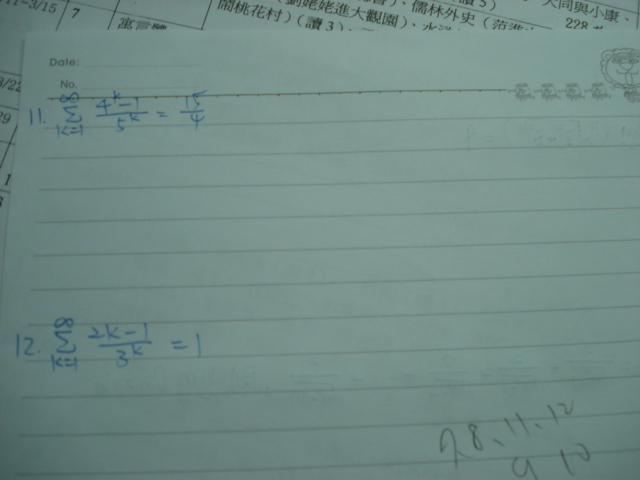 11-3/15 7 寓言體 閣桃花村)(讀3)、 (劉姥姥進大觀園)、水滸 、儒林外史 大同與小康、
228
3/22
29
Date:
No.
11. ∞Σk=1 (4^k-1)/(5^k) = 15/4
12. ∞Σk=1 (2k-1)/(3^k) = 1
7、8、11、12
9 10